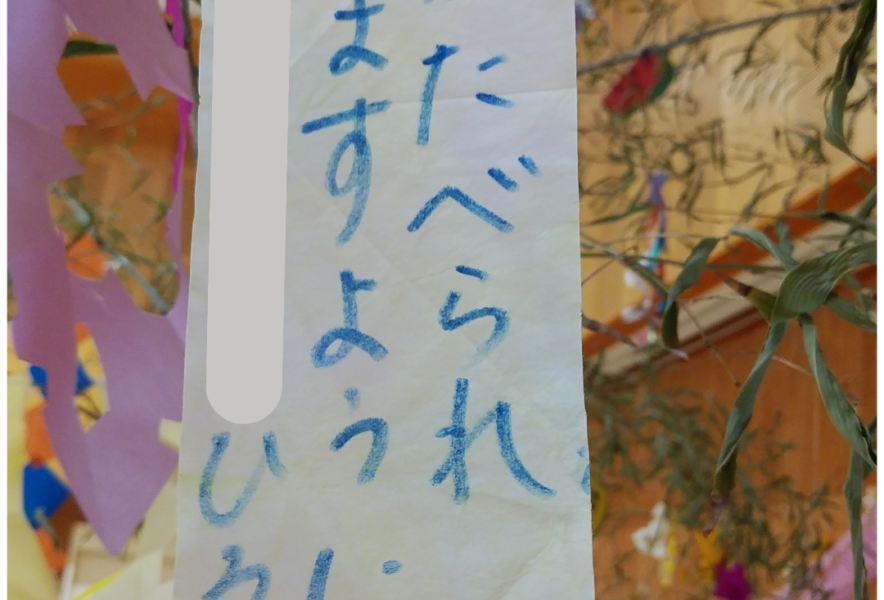 たべられ
ますよう
ひろ